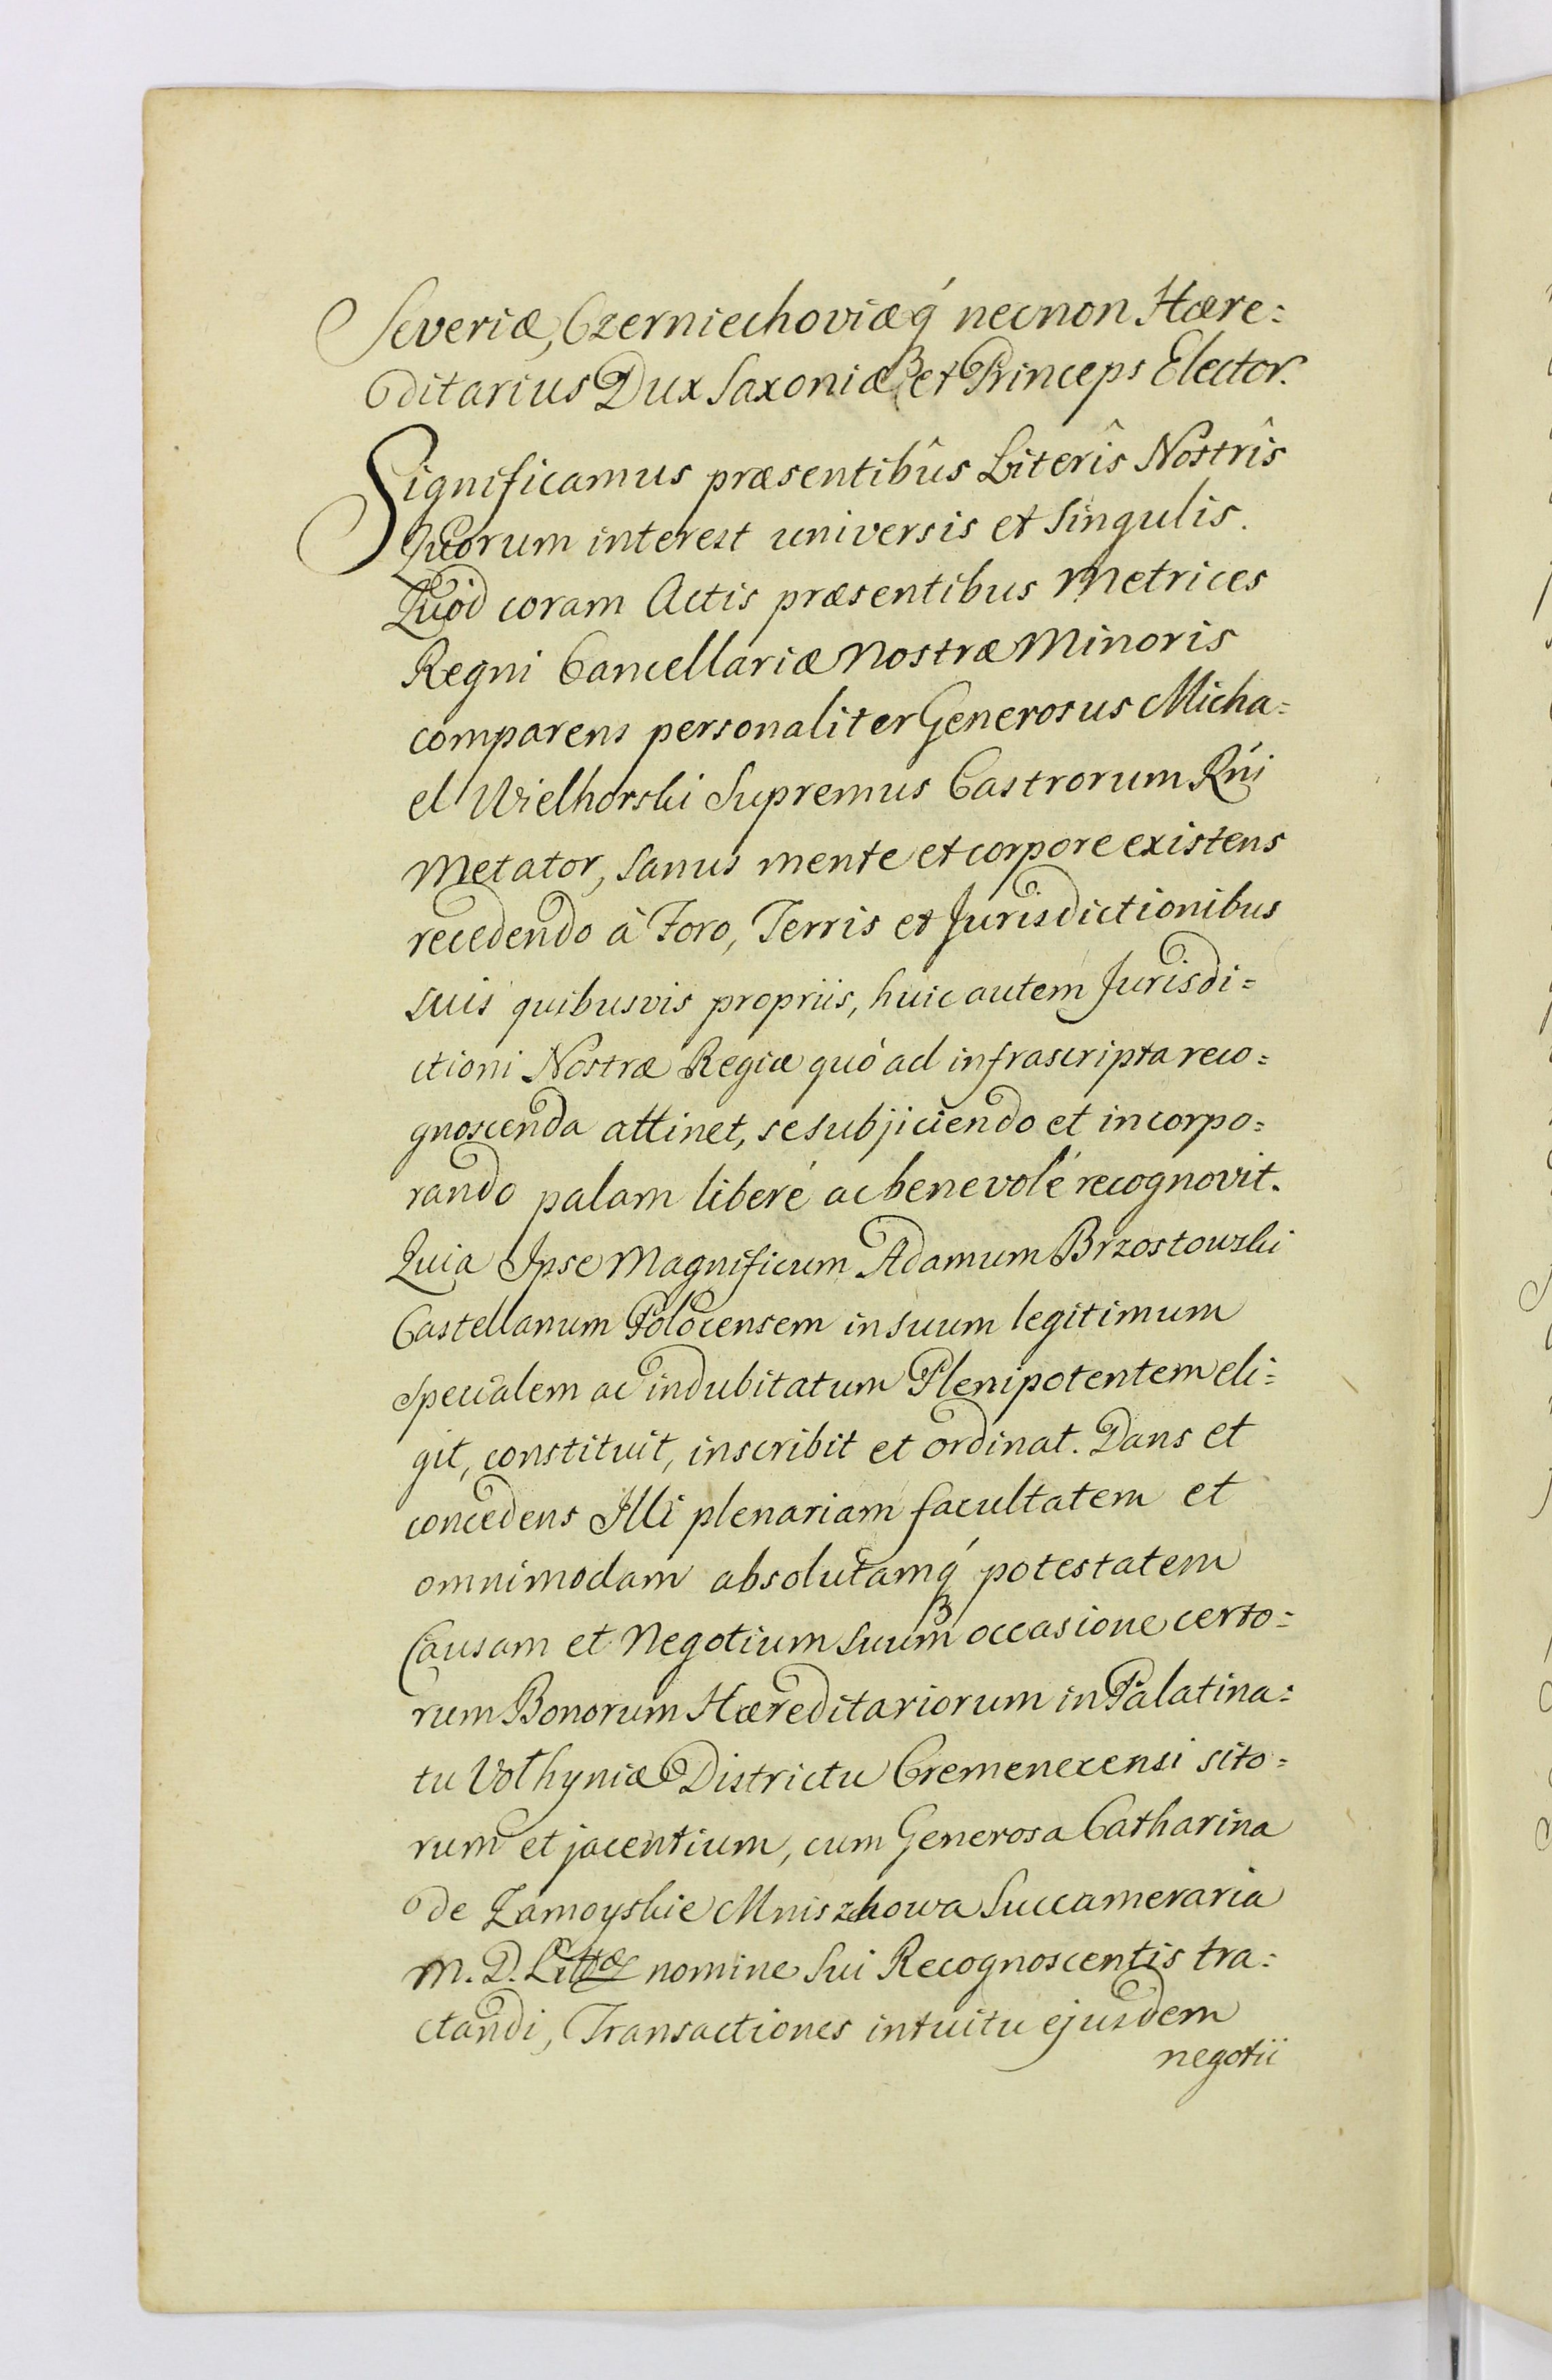 Severiæ, Czerniechoviæq́ necnon Hære=
ditarius Dux Saxoniæ et Princeps Elector.
Significamus præsentibûs Literîs Nostrîs
Quorum interest universis et singulis.
Quod coram Actis præsentibus Metrices
Regni Cancellariæ Nostræ Minoris
comparens personaliter Generosus Micha=
el Wielhorski Supremus Castrorum Rńi
Metator, sanus mente et corpore existens
recedendo à Foro, Terris et Jurisdictionibus
suis quibusvis propriis, huic autem Jurisdi=
ctioni Nostræ Regiæ quó ad infrascripta reco=
gnoscenda attinet, se subjiciendo et incorpo=
rando palam liberé ac benevolé recognovit.
Quia Ipse Magnificum Adamum Brzostowski
Castellanum Polocensem in suum legitimum
specialem ac indubitatum Plenipotentem eli=
git, constituit, inscribit et ordinat. Dans et
concedens Illi plenariam facultatem et
omnimodam absolutamq́ potestatem
Causam et Negotium suum occasione certo=
rum Bonorum Hæreditariorum in Palatina=
tu Volhyniæ Districtu Cremenecensi sito=
rum et jacentium, cum Generosa Catharina
de Zamoyskie Mniszkowa Succameraria
M. D. Littæ nomine sui Recognoscentis tra=
ctandi, Transactiones intuitu ejusdem
negotii